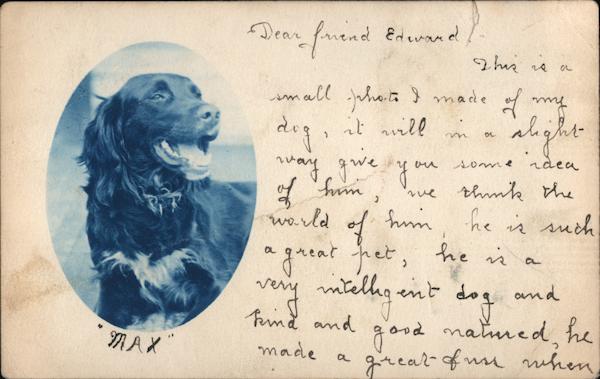 Dear friend Edward!
This is a
small photo I made of my
dog, it will in a slight
way give you some idea
of him, we think the
world of him, he is such
a great pet, he is a
very intelligent dog and
kind and good natured, he
made a great fuss when
"MAX"